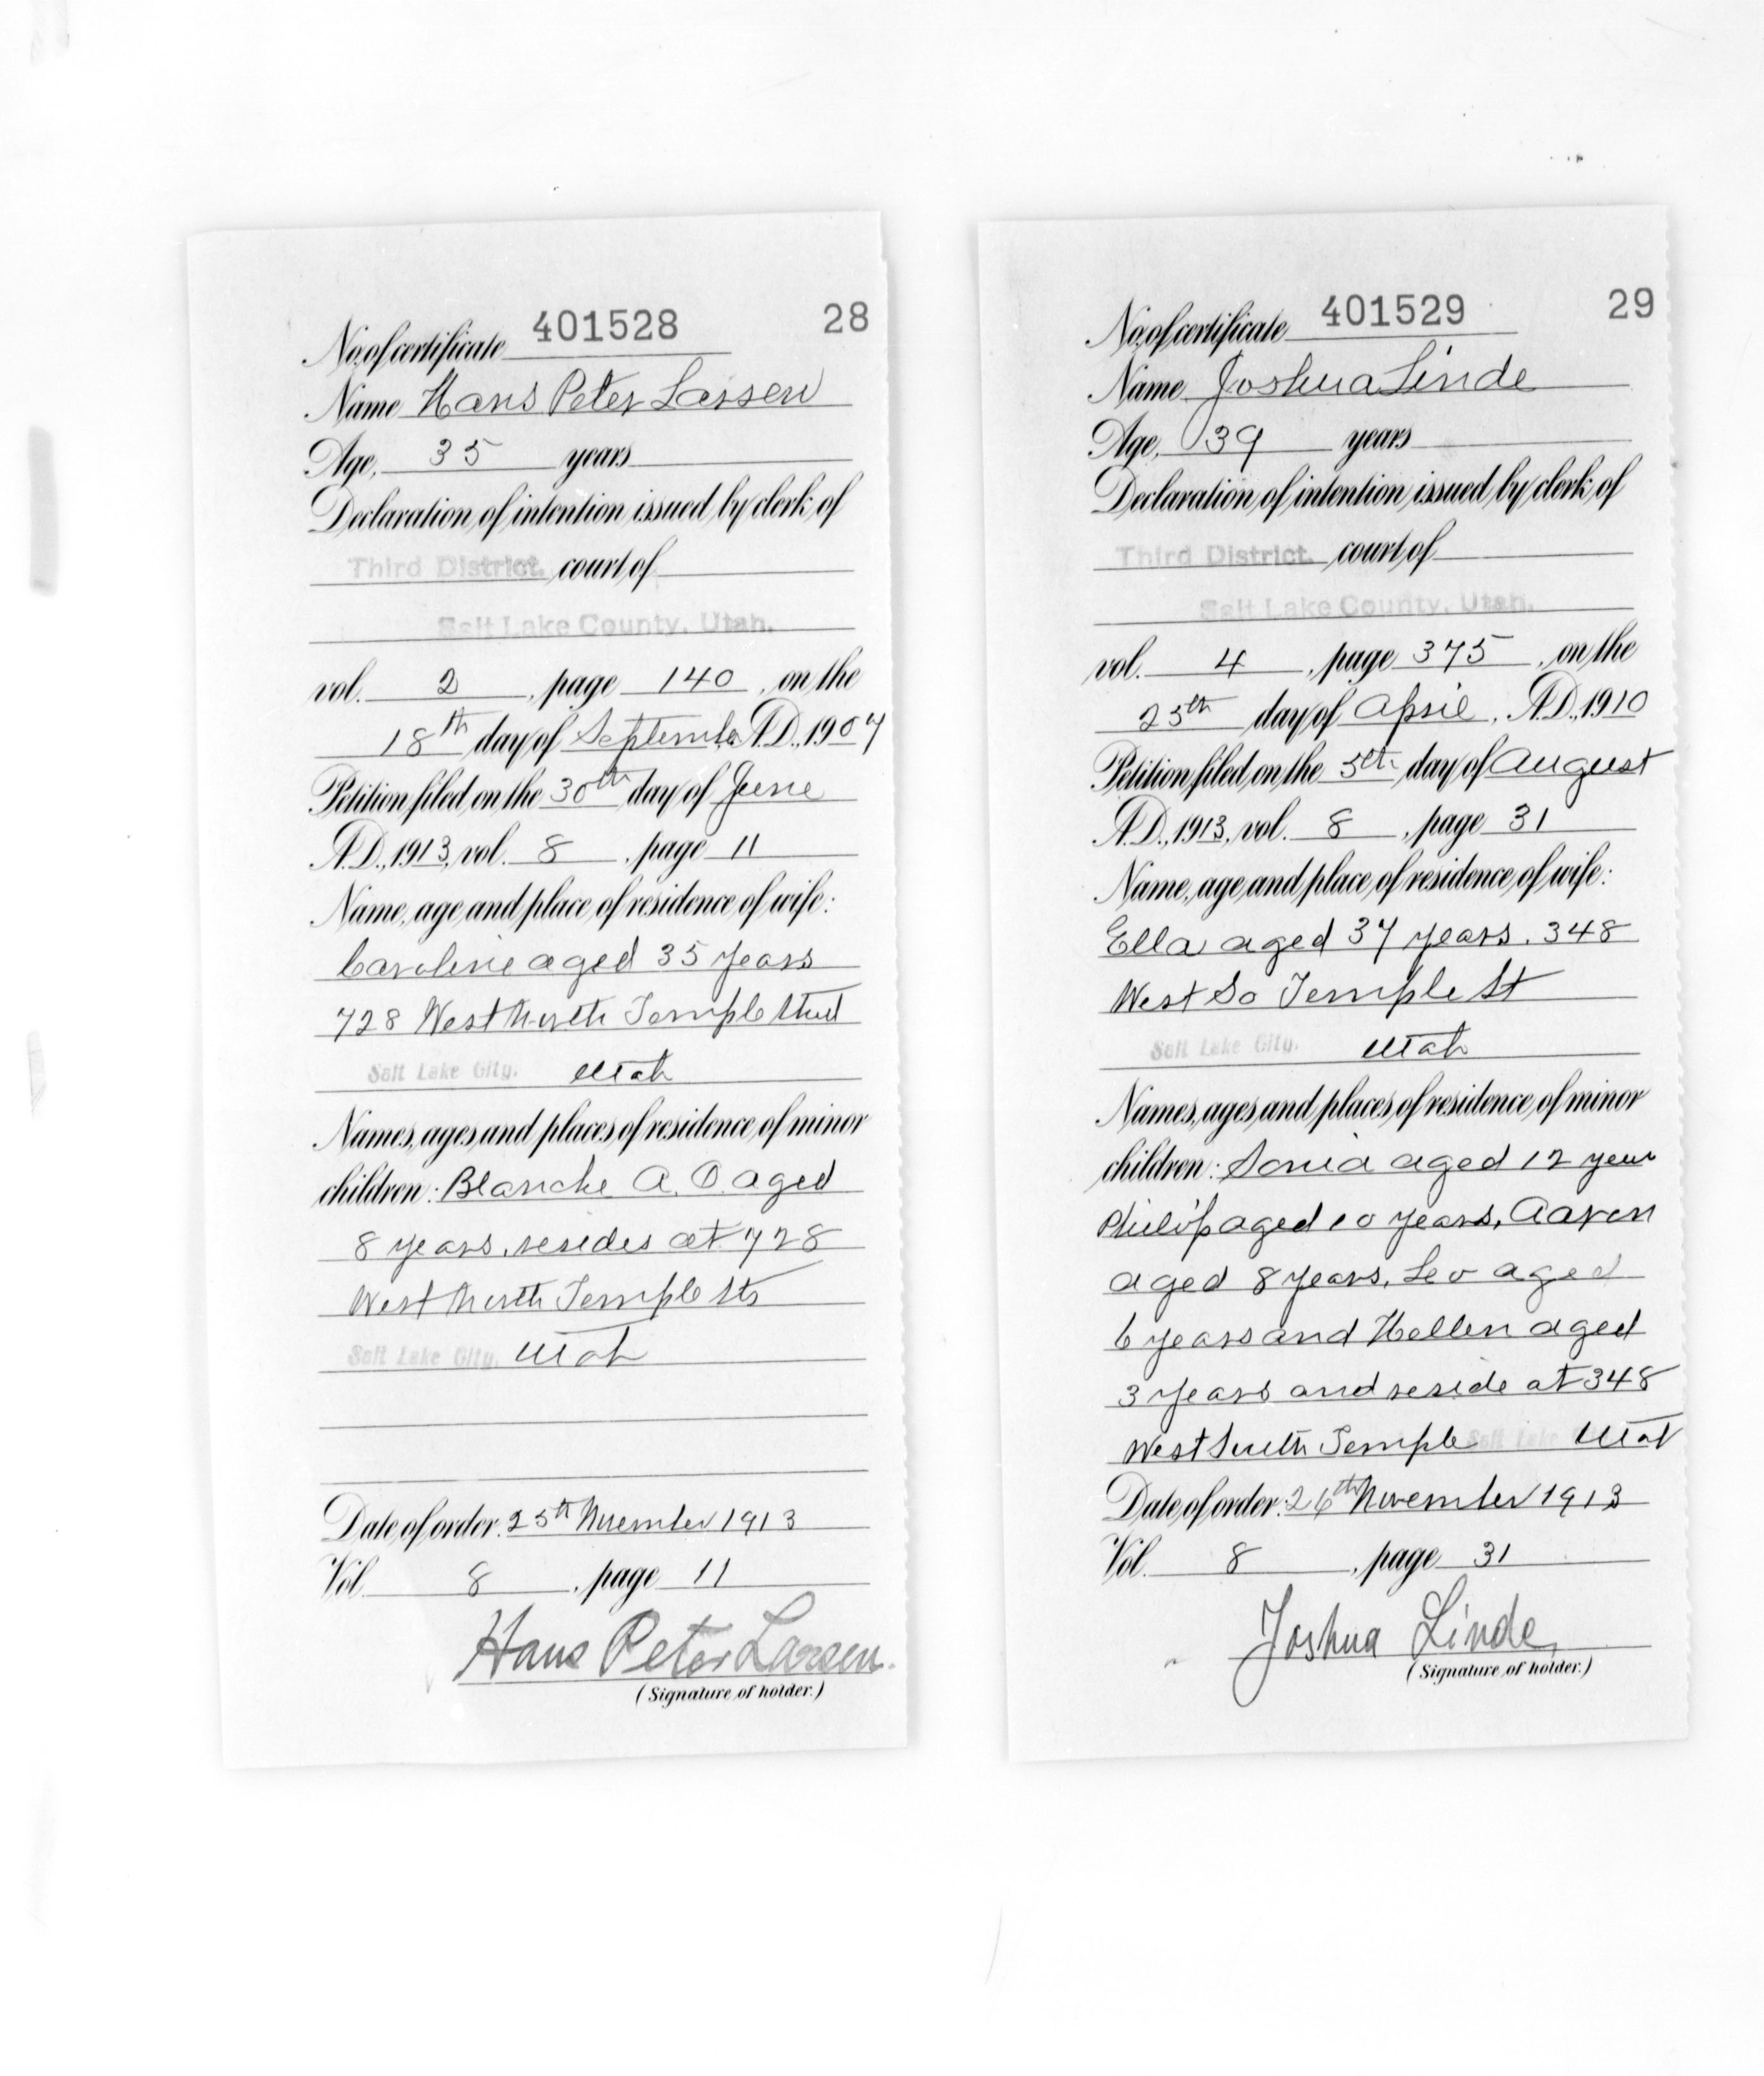 401528 28
No. of certificate
Name Hans Peter Larsen
Age, 35 years
Declaration of intention issued by clerk of
Third District. court of
Salt Lake County, Utah.
vol. 2, page 140, on the
18th day of Septembe A.D., 1907
Petition filed on the 30th day of June
A.D., 1913, vol. 8, page 11
Name, age and place of residence of wife:
Caroline aged 35 years
728 West North Temple Street
Salt Lake City. Utah
Names, ages and places of residence of minor
children: Blanche A. O. aged
8 years, resides at 728
West North Temple St
Salt Lake City. Utah
Date of order: 25th November 1913
Vol. 8, page 11
Hans Peter Larsen.
(Signature of holder.)
401529 29
No. of certificate
Name Joshua Linde
Age, 39 years
Declaration of intention issued by clerk of
Third District. court of
Salt Lake County, Utah.
vol. 4, page 375, on the
25th day of April, A.D., 1910
Petition filed on the 5th day of August
A.D., 1913, vol. 8, page 31
Name, age and place of residence of wife:
Ella aged 37 years. 348
West So Temple St
Salt Lake City. Utah
Names, ages and places of residence of minor
children: Sonia aged 12 year
Philip aged 10 years, Aaron
aged 8 years, Leo aged
6 years and Hellen aged
3 years and reside at 348
West South Temple Salt Lake Utah
Date of order: 26th November 1913
Vol. 8, page 31
Joshua Linde
(Signature of holder.)